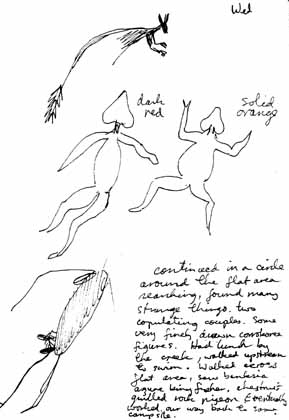 Wed
dark
red
solid
orange
continued in a circle
around the flat area
searching, found many
strange things. two
copulating couples. Some
very finely drawn
figures. Had lunch by
the creek, walked upstream
to swim. Walked across
flat area, saw banksia
azure kingfisher, chestnut
quilled rock pigeon Eventually
worked our way back to some
camp site.